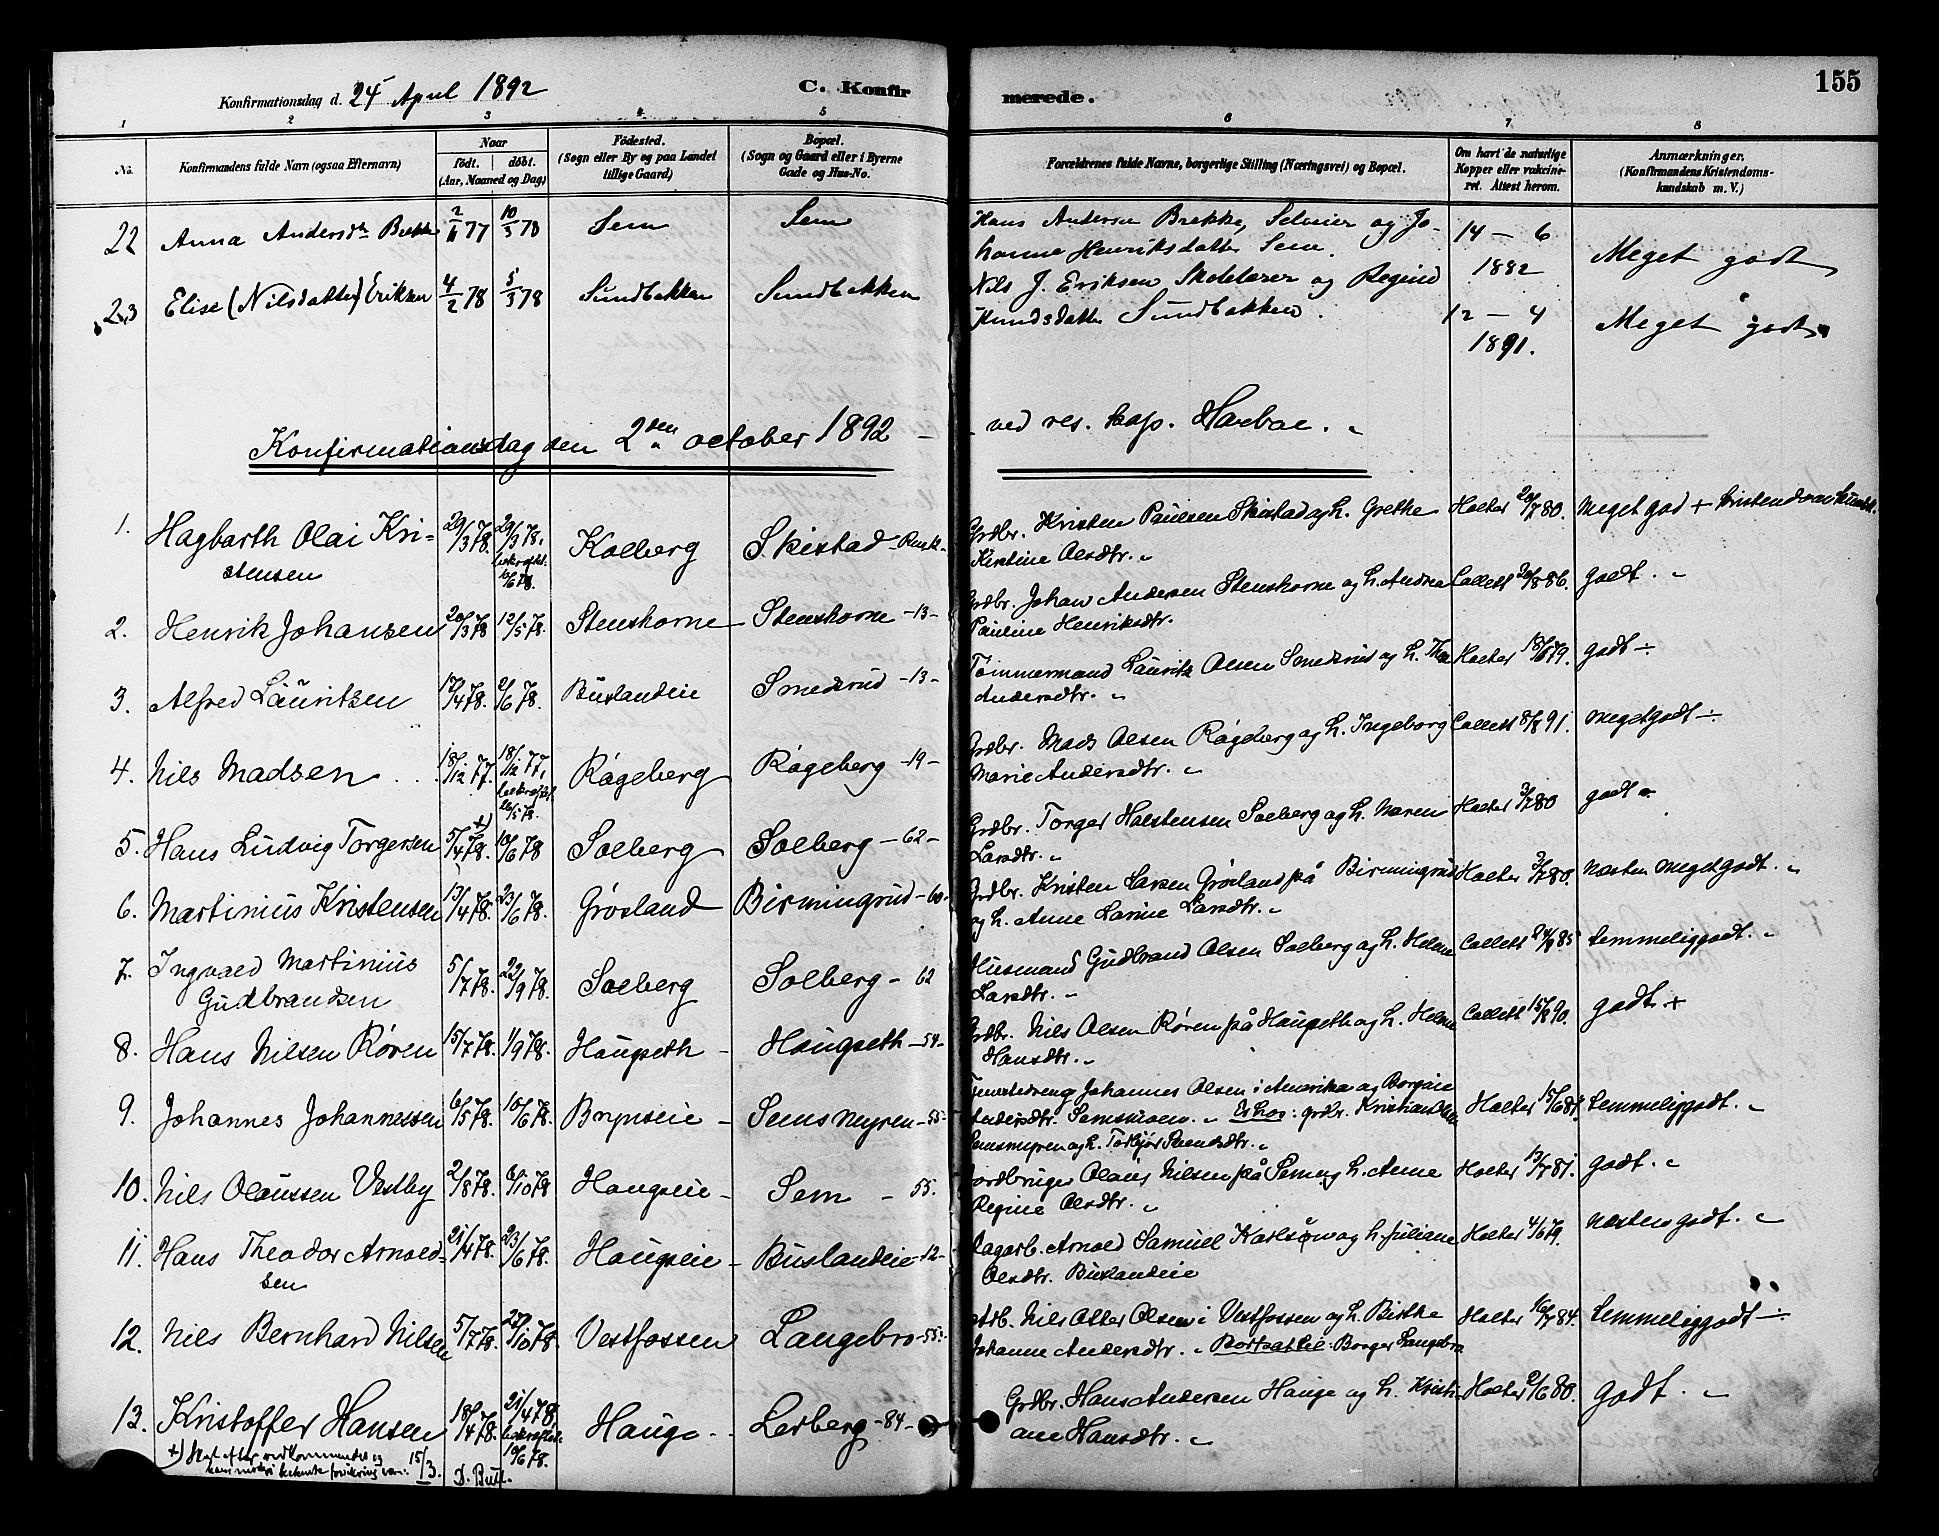 Konfirmationsdag d. 24 April 1892 C. Konfir
merede. 155
1 2 3 4 5 6 7 8
No. Konfirmandens fulde Navn (ogsaa Efternavn) Naar født. døbt. (Aar, Maaned og Dag) Fødested. (Sogn eller By og paa Landet tillige Gaard) Bopæl. (Sogn og Gaard eller i Byerne Gade og Hus-No.
Forældrenes fulde Navne, borgerlige Stilling (Næringsvei) og Bopæl. Om havt de naturlige Kopper eller vaccineret. Attest herom. Anmærkninger. (Konfirmandens Kristendomskundskab m. V.)
22 Anna Andersdtr Brekke 2/11 77 10/3 78 Sem Sem
Hans Andersen Brekke, Selveier og Jo-
hanne Henriksdatter Sem. 14 – 6 1882 Meget godt
23 Elise (Nilsdatter) Eriksen 4/2 78 5/3 78 Sundbakken Sundbakken
Nils J. Eriksen Skolelærer og Regine
Knudsdatter Sundbakken. 12 – 4 1891. Meget godt
Konfirmationsdag den 2den october 1892 –
ved res. kap. Harboe.
1. Hagbarth Olai Kri-
stensen 29/3 78. 29/3 78. bekræftet 10/6 78. Kolberg Skistad
Grdbr. Kristen Paulsen Skistad og h. Grethe
Kirstine Olsdtr. Holter 20/7 80. Meget god + kristendomskundsk.
2. Henrik Johansen 20/3 78 12/5 78. Stenshorne Stenshorne – 13 –
Grdbr. Johan Andersen Stenshorne og h. Andrea
Pauline Henriksdtr. Collett 20/8 86. godt.
3. Alfred Lauritsen 17/4 78. 2/6 78. Buslandeie Smedsrud – 13 –
Tømmermand Lauritz Olsen Smedsrud og h. Thea
Andersdtr. Holter 18/6 79. godt ÷
4. Nils Madsen 18/12 77. 18/12 77. bekræftet 26/5 78. Røgeberg Røgeberg – 19 –
Grdbr. Mads Olsen Røgeberg og h. Ingeborg
Marie Andersdtr. Collett 8/8 91. meget godt ÷
5. Hans Ludvig Torgersen 5/4 78. +) 10/6 78 Solberg Solberg – 62 –
Grdbr. Torger Holstensen Solberg og h. Maren
Larsdtr. Holter 3/7 80 godt
6. Martinius Kristensen 13/4 78. 23/6 78. Grøsland Birmingrud – 60 –
Grdbr. Kristen Larsen Grøsland på Birmingrud
og h. Anne Larine Larsdtr. Holter 3/7 80. næsten meget godt.
7. Ingvald Martinius
Gudbrandsen 5/7 78. 22/9 78. Solberg Solberg – 62
Husmand Gudbrand Olsen Solberg og h. Helene
Larsdtr. Collett 24/9 85 temmelig godt.
8. Hans Nilsen Røren 15/7 78. 1/9 78. Haugseth – Haugseth – 54 –
Grdbr. Nils Olsen Røren på Haugseth og h. Helene
Hansdtr. Collett 15/8 90. godt +
9. Johannes Johannessen 6/5 78. 10/6 78. Brynseie – Semsmyren – 55 –
Tjenestedreng Johannes Olsen i Amerika og Borgine
Andersdtr. Semsmoen. Er hos: grdbr. Kristian
Semsmyren og h. Torbjør Svendsdtr. Holter 15/6 81. temmelig godt.
10. Nils Olaussen Vestby 2/8 78. 6/10 78 Haugseie – Sem – 55.
Jordbruger Olaus Nilsen på Sem og h. Anne
Regine Olsdtr. Holter 13/7 81. godt.
11. Hans Theodor Arnold-
sen 21/4 78. 23/6 78. Haugseie – Buslandeie – 12 –
Dagarb. Arnold Samuel Karlsen og h. Juliane
Olsdtr. Buslandeie Holter 4/6 79. næsten godt.
12. Nils Bernhard Nilsen 5/7 78. 27/10 78 Vestfossen Langebro – 55.
Arb. Nils Otter Olsen i Vestfossen og h. Birthe
Johanne Andersdtr. Bortsat til: Borger Langebro Holter 16/7 84. temmelig godt ÷
13. Kristoffer Hansen 18/4 78. 21/4 78 bekræftet 10/6 78. Hauge – Lerberg – 84 –
Grdbr. Hans Andersen Hauge og h. Kristi-
ane Hansdtr. Holter 2/6 80. godt.
+) Skal efter vedkommendes og
hans moders bestemte forsikring være 15/3. D. Bull.